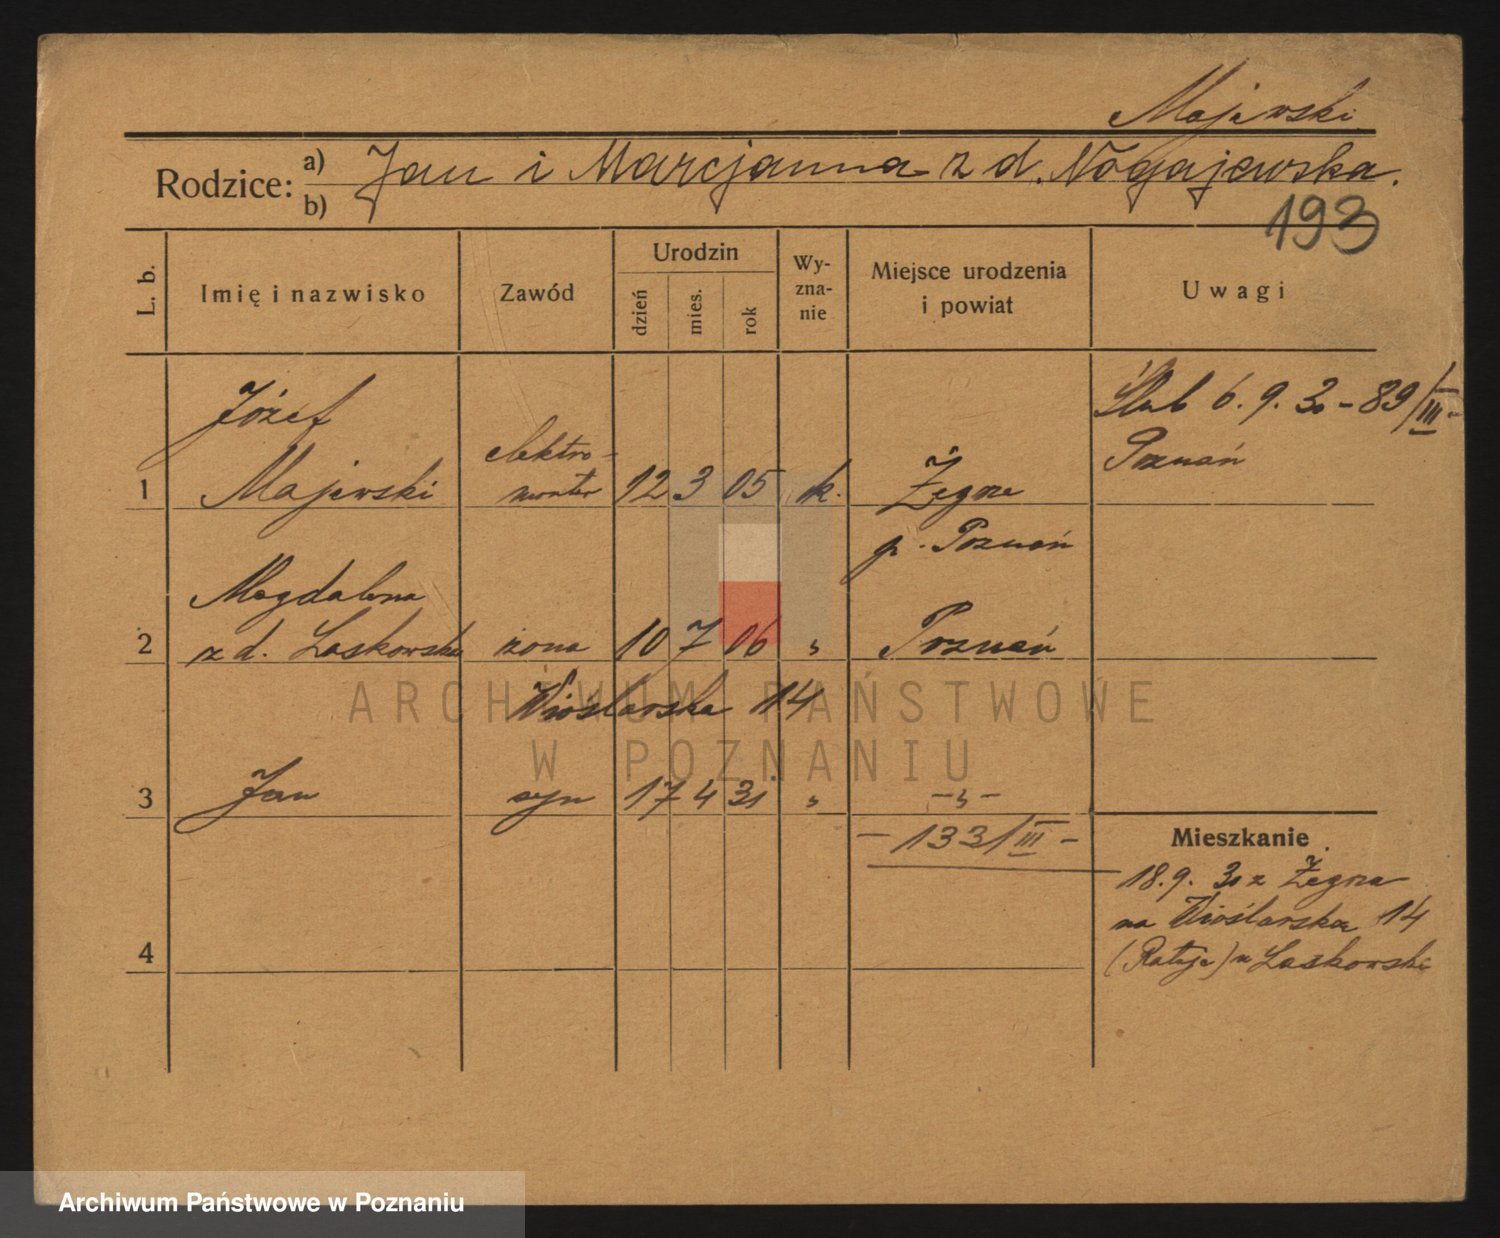 Majewski
Rodzice: a) b) Jan i Marcjanna z d. Nogajewska.
193
L. b.
Imię i nazwisko
Zawód
Urodzin
dzień
mies.
rok
Wy-
zna-
nie
Miejsce urodzenia
i powiat
Uwagi
Józef
Ślub 6. 9. 30 - 89/III -
Poznań
elektro-
1 Majewski monter 12 3 05 k. Żegrze
p. Poznań
Magdalena
2 z d. Laskowska żona 10 7 06 " Poznań
Wioślarska 14
ARCHIWUM PAŃSTWOWE
W POZNANIU
3 Jan syn 17 4 31 " - " -
- 133/III -
Mieszkanie
18. 9. 30 z Żegrza
na Wioślarska 14
(Rataje) u Laskowski
4
Archiwum Państwowe w Poznaniu